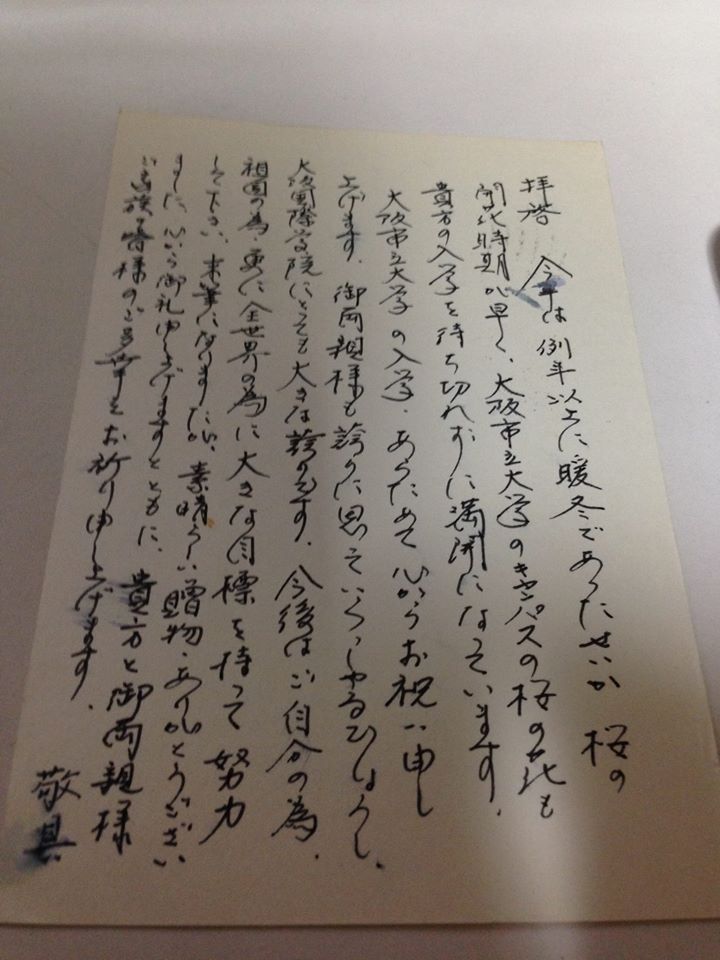 拝啓 今年は例年以上に暖冬であったせいか 桜の
開花時期が早く、大阪市立大学のキャンパスの桜の花も
貴方の入学を待ち切れずに満開になっています。
大阪市立大学の入学、あらためて心からお祝い申し
上げます。御両親様も誇りに思っていらっしゃるでしょうし、
大阪国際学院にとっても大きな誇りです。今後はご自分の為、
祖国の為、更に全世界の為に大きな目標を持って努力
して下さい。末筆になりましたが、素晴らしい贈物、ありがとうござい
ました。心から御礼申し上げますとともに、貴方と御両親様
ご家族の皆様のご多幸をお祈り申し上げます。
敬具